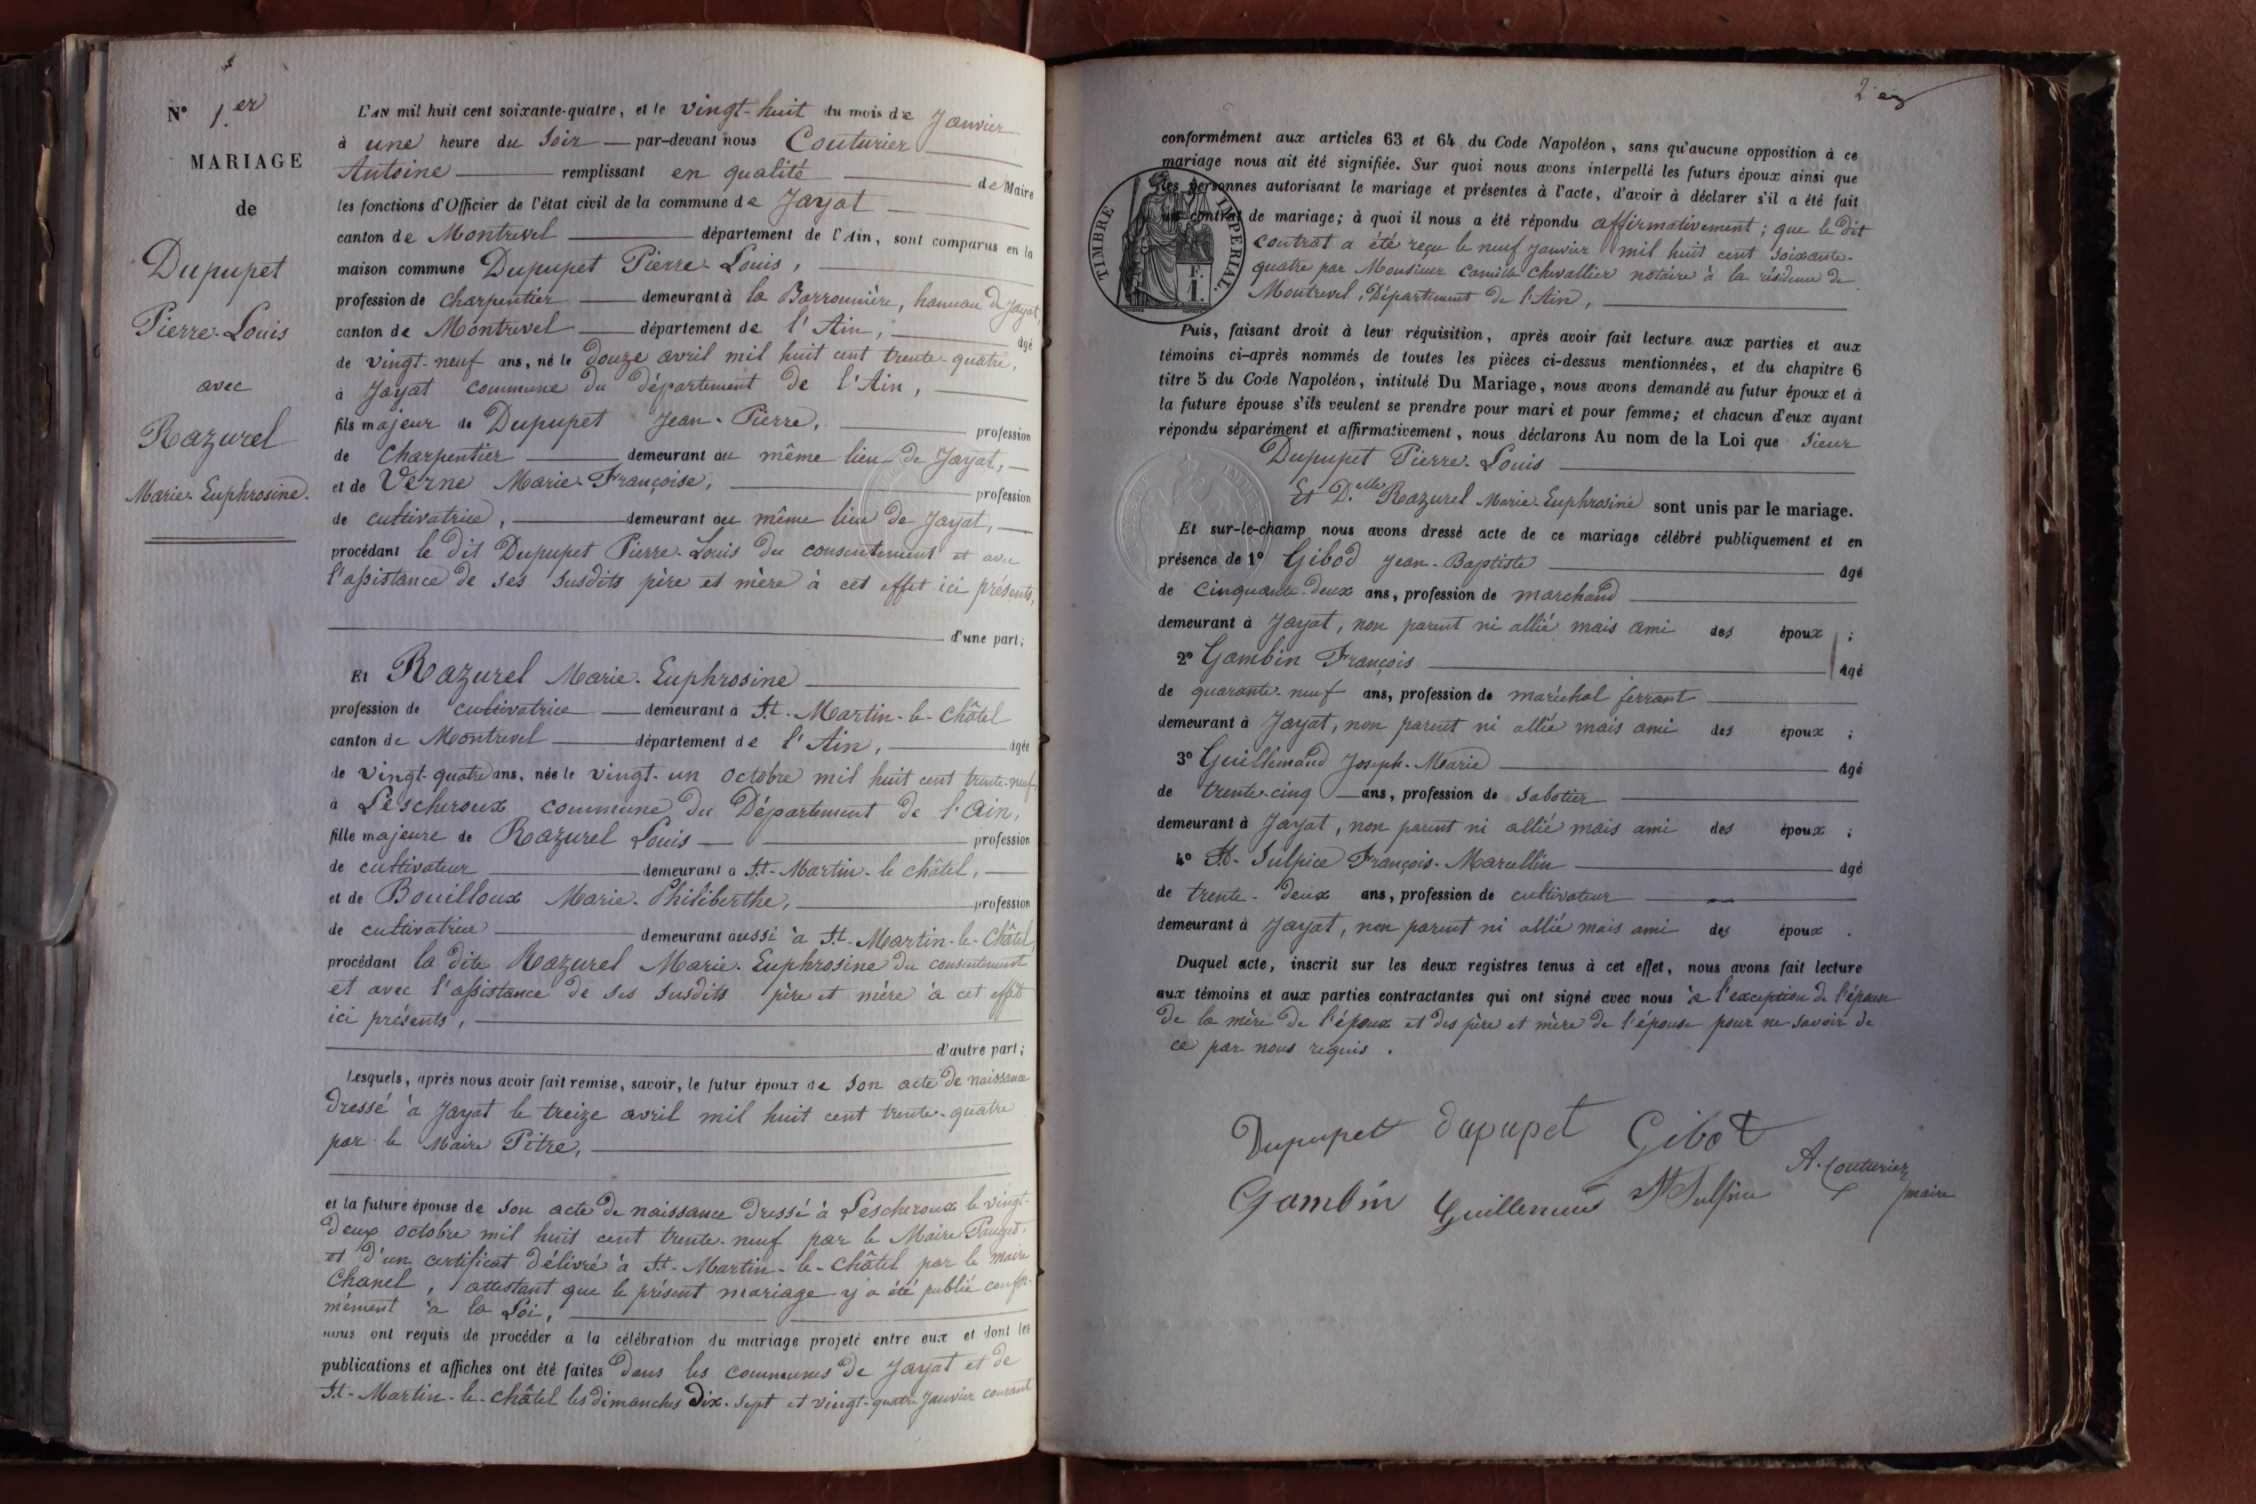 N° 1.er
MARIAGE
de
Dupupet
Pierre-Louis
avec
Razurel
Marie-Euphrosine.
L'AN mil huit cent soixante-quatre, et le vingt-huit du mois de Janvier
à une heure du soir par-devant nous Couturier
Antoine remplissant en qualité de Maire
les fonctions d'Officier de l'état civil de la commune de Jayat
canton de Montrevel département de l'Ain, sont comparus en la
maison commune Dupupet Pierre-Louis,
profession de charpentier demeurant à la Barronnière, hameau de Jayat,
canton de Montrevel département de l'Ain, âgé
de vingt-neuf ans, né le douze avril mil huit cent trente-quatre,
à Jayat commune du département de l'Ain,
fils majeur de Dupupet Jean-Pierre, profession
de Charpentier demeurant au même lieu de Jayat,
et de Verne Marie-Françoise, profession
de cultivatrice, demeurant au même lieu de Jayat,
procédant le dit Dupupet Pierre-Louis du consentement et avec
l'assistance de ses susdits père et mère à cet effet ici présents,
d'une part;
Et Razurel Marie-Euphrosine
profession de cultivatrice demeurant à St-Martin-le-Châtel
canton de Montrevel département de l'Ain, âgée
de vingt-quatre ans, née le vingt-un octobre mil huit cent trente-neuf
à Lescheroux commune du Département de l'Ain,
fille majeure de Razurel Louis profession
de cultivateur demeurant à St-Martin-le châtel,
et de Bouilloux Marie-Philiberthe, profession
de cultivatrice demeurant aussi à St-Martin-le-Châtel
procédant la dite Razurel Marie-Euphrosine du consentement
et avec l'assistance de ses susdits père et mère à cet effet
ici présents,
d'autre part;
Lesquels, après nous avoir fait remise, savoir, le futur époux de son acte de naissance
dressé à Jayat le treize avril mil huit cent trente-quatre
par le Maire Pitre,
et la future épouse de son acte de naissance dressé à Lescheroux le vingt-
deux octobre mil huit cent trente-neuf par le Maire
et d'un certificat délivré à St-Martin-le-châtel par le maire
Chanel, attestant que le présent mariage y a été publié confor-
mément à la Loi,
nous ont requis de procéder à la célébration du mariage projeté entre eux et dont les
publications et affiches ont été faites dans les communes de Jayat et de
St-Martin-le-châtel les dimanches Dix-sept et vingt-quatre Janvier courant
2
conformément aux articles 63 et 64 du Code Napoléon, sans qu'aucune opposition à ce
mariage nous ait été signifiée. Sur quoi nous avons interpellé les futurs époux ainsi que
les personnes autorisant le mariage et présentes à l'acte, d'avoir à déclarer s'il a été fait
un contrat de mariage; à quoi il nous a été répondu affirmativement; que le dit
contrat a été reçu le neuf janvier mil huit cent soixante-
quatre par Monsieur Camille Chevallier notaire à la résidence de
Montrevel, Département de l'Ain,
TIMBRE IMPERIAL.
F.
1.
Puis, faisant droit à leur réquisition, après avoir fait lecture aux parties et aux
témoins ci-après nommés de toutes les pièces ci-dessus mentionnées, et du chapitre 6
titre 5 du Code Napoléon, intitulé Du Mariage, nous avons demandé au futur époux et à
la future épouse s'ils veulent se prendre pour mari et pour femme; et chacun d'eux ayant
répondu séparément et affirmativement, nous déclarons Au nom de la Loi que Sieur
Dupupet Pierre-Louis
Et D.elle Razurel Marie-Euphrosine sont unis par le mariage.
Et sur-le-champ nous avons dressé acte de ce mariage célébré publiquement et en
présence de 1° Gibod Jean-Baptiste âgé
de cinquante-deux ans, profession de marchand
demeurant à Jayat, non parent ni allié mais ami des époux ;
2° Gambin François âgé
de quarante-neuf ans, profession de maréchal ferrant
demeurant à Jayat, non parent ni allié mais ami des époux ;
3° Guillemaud Joseph-Marie âgé
de trente-cinq ans, profession de sabotier
demeurant à Jayat, non parent ni allié mais ami des époux ;
4° St-Sulpice François-Marcellin âgé
de trente-deux ans, profession de cultivateur
demeurant à Jayat, non parent ni allié mais ami des époux .
Duquel acte, inscrit sur les deux registres tenus à cet effet, nous avons fait lecture
aux témoins et aux parties contractantes qui ont signé avec nous à l'exception de l'épouse
de la mère de l'époux et des père et mère de l'épouse pour ne savoir de
ce par nous requis.
Dupupet dupupet Gibot
A. Couturier
maire
Gambin Guillemin St Sulpice